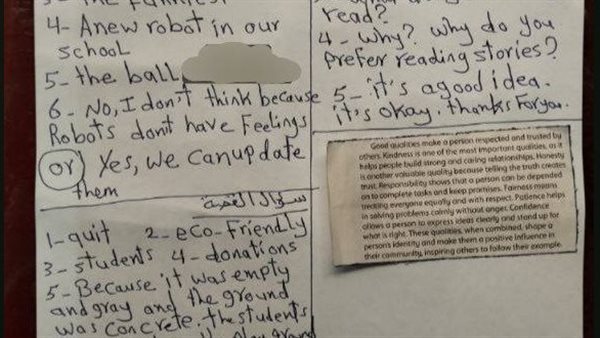 4- Anew robot in our
school
5- the ball
6- No, I don't think because
Robots don't have Feelings
(or) Yes, we can update
them
سؤال القصة
1- quit 2- eco-friendly
3- students 4- donations
5- Because it was empty
and gray and the ground
was concrete. the students
read?
4- Why? why do you
prefer reading stories?
5- it's agood idea.
it's okay. thanks For you.
Good qualities make a person respected and trusted by
others. Kindness is one of the most important qualities, as it
helps people build strong and caring relationships. Honesty
is another valuable quality because telling the truth creates
trust. Responsibility shows that a person can be depended
on to complete tasks and keep promises. Fairness means
treating everyone equally and with respect. Patience helps
in solving problems calmly without anger. Confidence
allows a person to express ideas clearly and stand up for
what is right. These qualities, when combined, shape a
person's identity and make them a positive influence in
their community, inspiring others to follow their example.